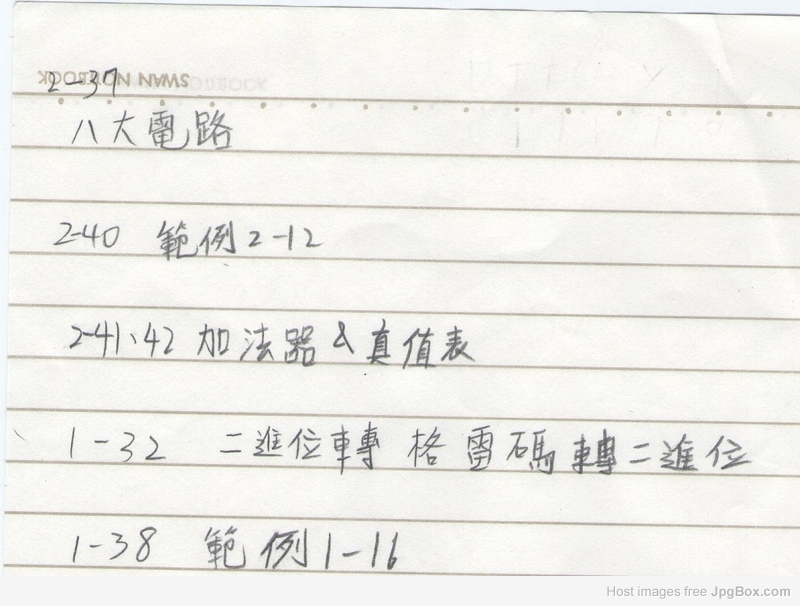 SWAN NOTEBOOK
2-37
八大電路
2-40 範例2-12
2-41、42 加法器&真值表
1-32 二進位轉 格雷碼轉二進位
1-38 範例1-16
Host images free JpgBox.com